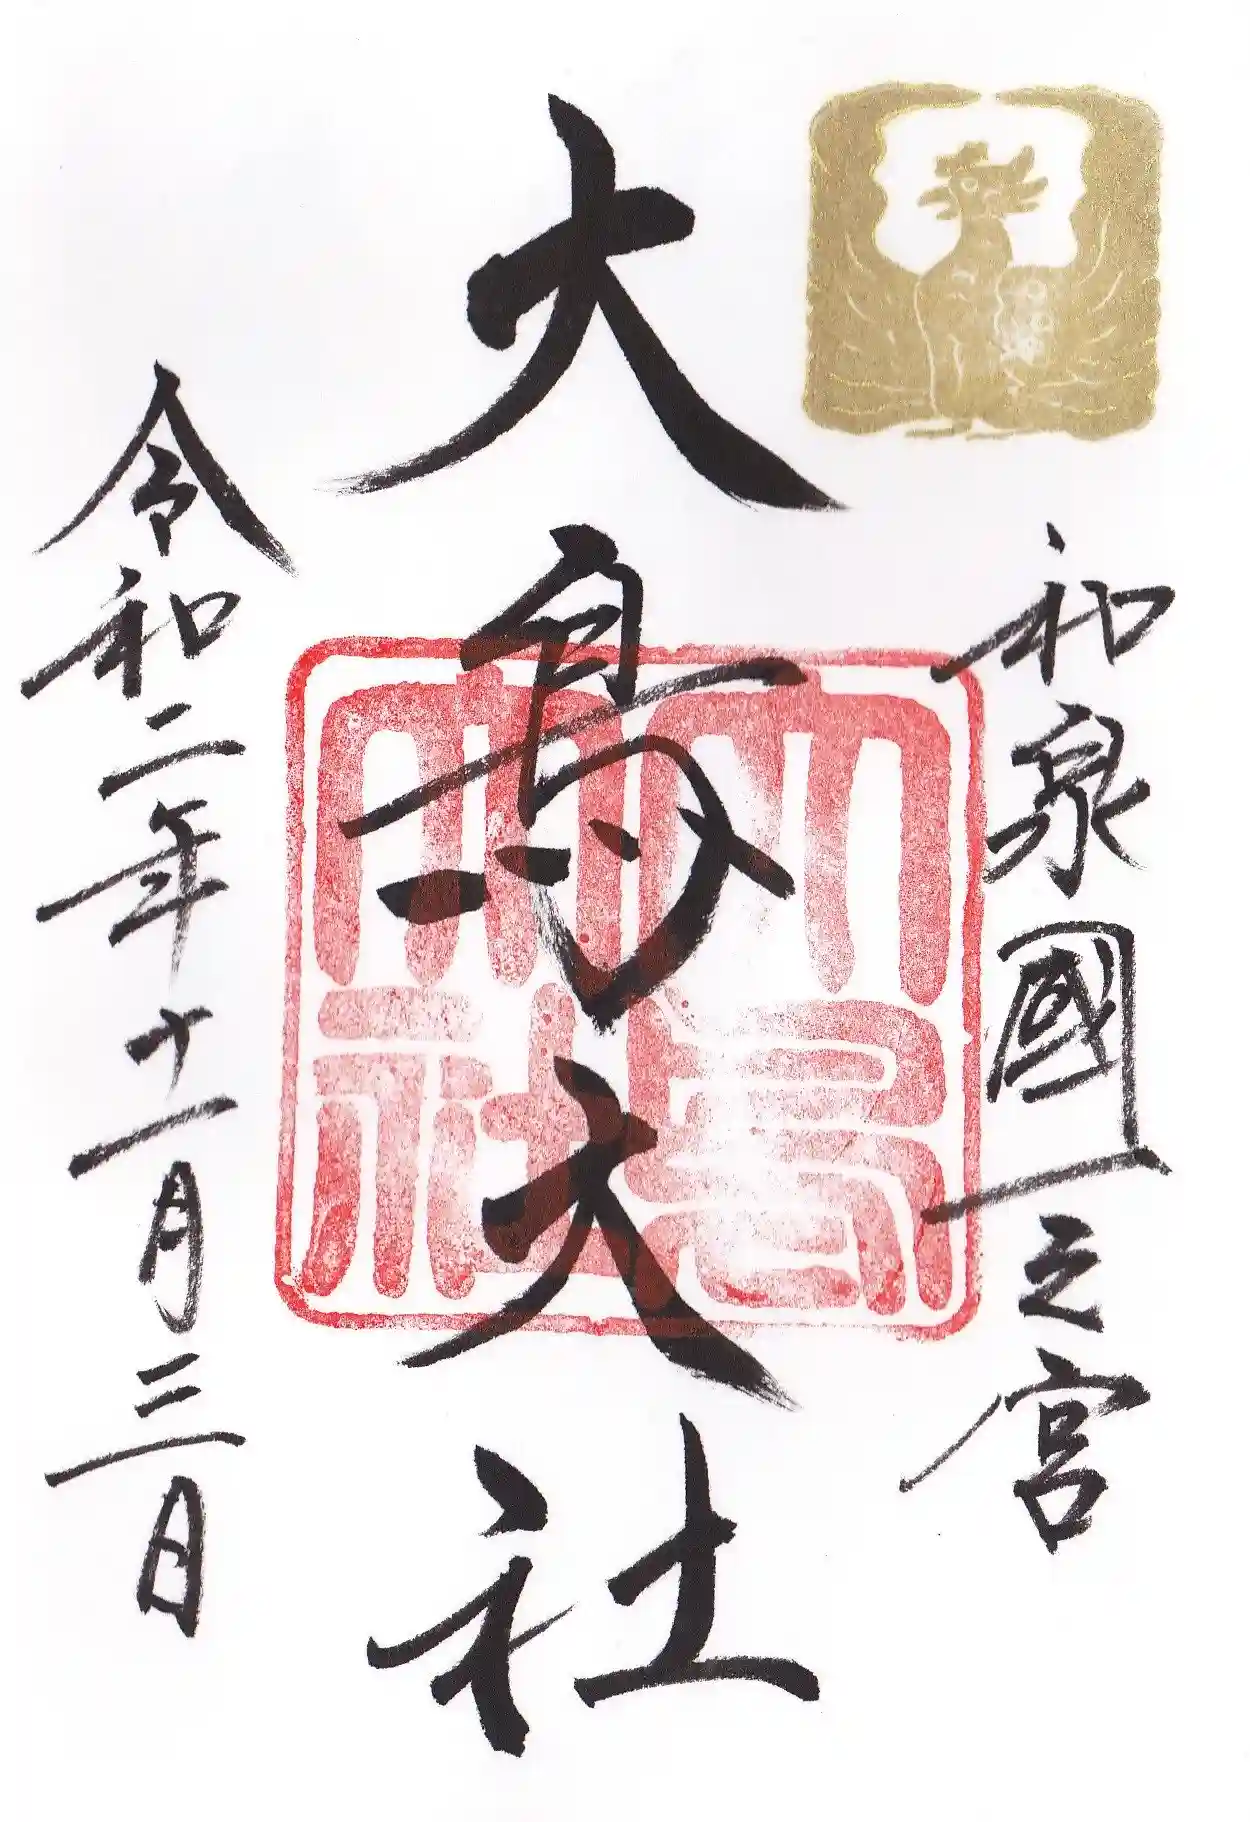 和泉國一之宮
大鳥大社
大鳥
大社
令和二年十一月三日